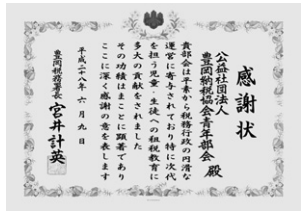 感謝状
公益社団法人
豊岡納税協会青年部会 殿
貴部会は平素から税務行政の円滑な
運営に寄与されており特に次代
を担う児童・生徒への租税教育に
多大の貢献をされました
その功績はまことに顕著であり
ここに深く感謝の意を表します
平成二十八年 六月 九日
豊岡税務署長 宮井計英